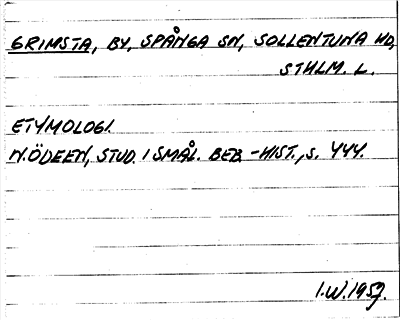 GRIMSTA, BY, SPÅNGA SN, SOLLENTUNA HD,
STHLM. L.
ETYMOLOGI.
N. ÖDEEN, STUD. I SMÅL. BEB.-HIST., S. 444.
I.W. 1959.